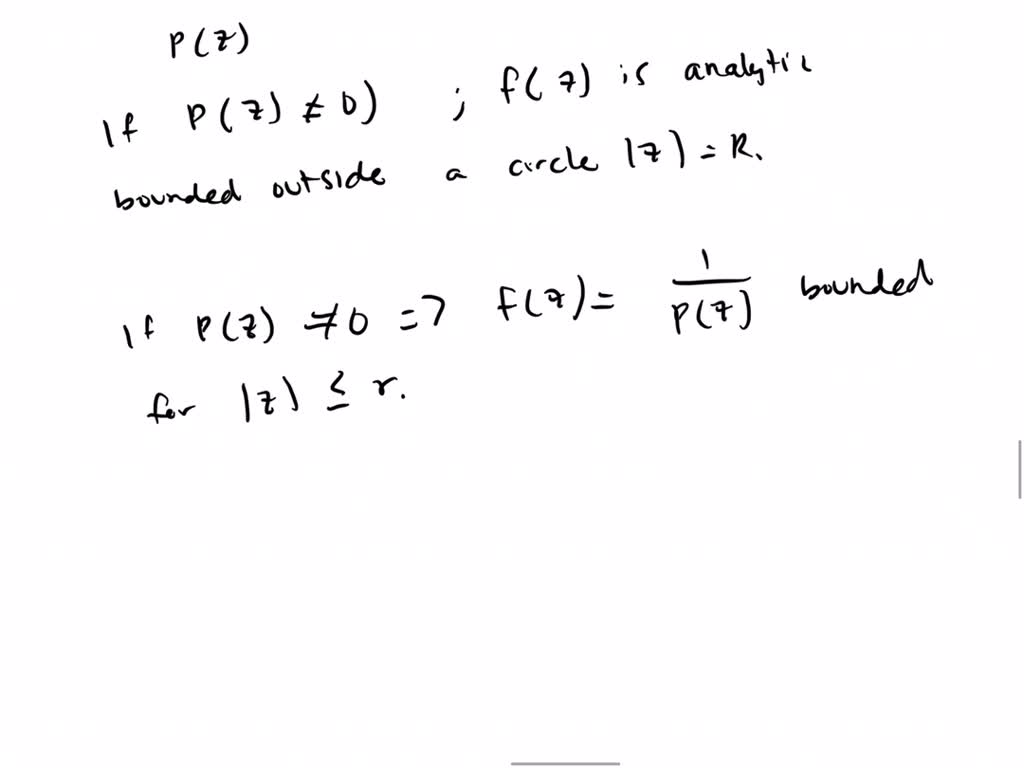 P(z)
If P(z) ≠ 0) ; f(z) is analytic
bounded outside a circle |z) = R.
If P(z) ≠ 0 => f(z) = 1/P(z) bounded
for |z) ≤ r.